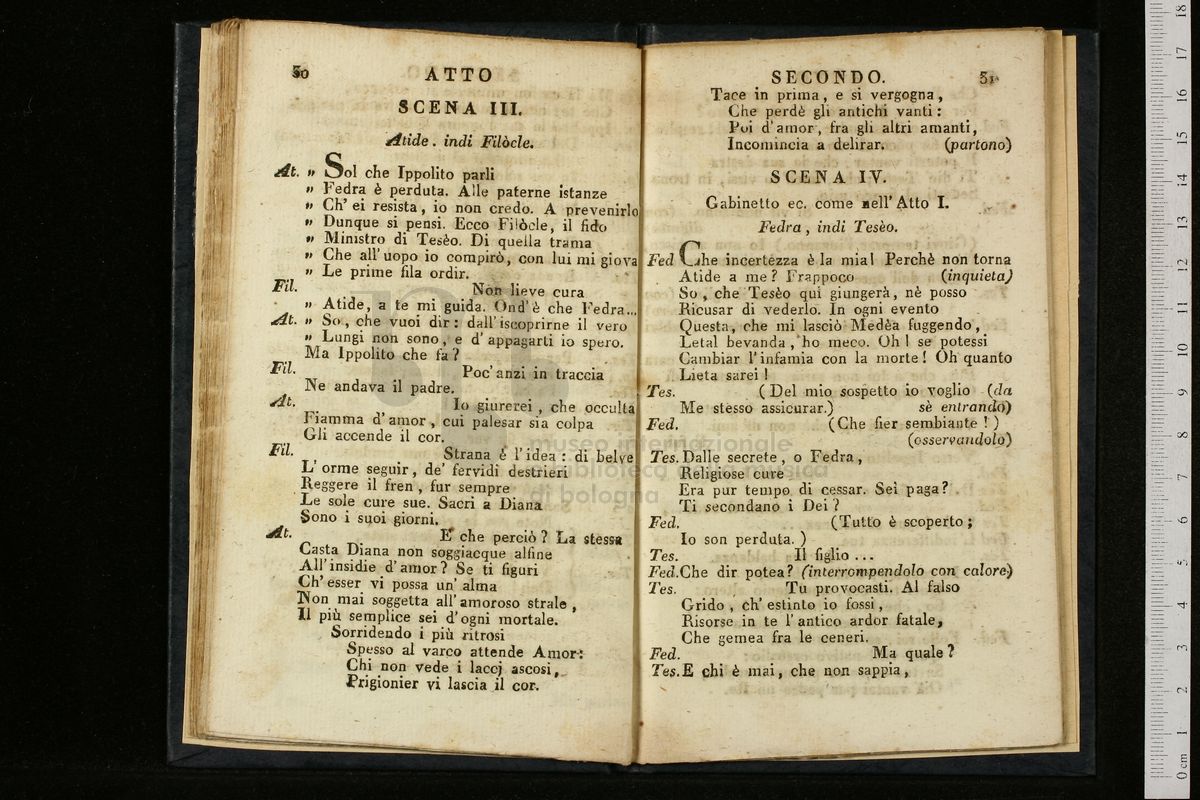 50 ATTO
SCENA III.
Atide. indi Filòcle.
At. „ Sol che Ippolito parli
„ Fedra è perduta. Alle paterne istanze
„ Ch' ei resista, io non credo. A prevenirlo
„ Dunque si pensi. Ecco Filòcle, il fido
„ Ministro di Tesèo. Di quella trama
„ Che all' uopo io compirò, con lui mi giova
„ Le prime fila ordir.
Fil. Non lieve cura
„ Atide, a te mi guida. Ond' è che Fedra...
At. „ So, che vuoi dir: dall' iscoprirne il vero
„ Lungi non sono, e d' appagarti io spero.
Ma Ippolito che fa?
Fil. Poc' anzi in traccia
Ne andava il padre.
At. Io giurerei, che occulta
Fiamma d' amor, cui palesar sia colpa
Gli accende il cor.
Fil. Strana è l' idea: di belve
L' orme seguir, de' fervidi destrieri
Reggere il fren, fur sempre
Le sole cure sue. Sacri a Diana
Sono i suoi giorni.
At. E che perciò? La stessa
Casta Diana non soggiacque alfine
All' insidie d' amor? Se ti figuri
Ch' esser vi possa un' alma
Non mai soggetta all' amoroso strale,
Il più semplice sei d' ogni mortale.
Sorridendo i più ritrosi
Spesso al varco attende Amor:
Chi non vede i laccj ascosi,
Prigionier vi lascia il cor.
SECONDO. 51
Tace in prima, e si vergogna,
Che perdè gli antichi vanti:
Poi d' amor, fra gli altri amanti,
Incomincia a delirar. (partono)
SCENA IV.
Gabinetto ec. come nell' Atto I.
Fedra, indi Tesèo.
Fed Che incertezza è la mia! Perchè non torna
Atide a me? Frappoco (inquieta)
So, che Tesèo qui giungerà, nè posso
Ricusar di vederlo. In ogni evento
Questa, che mi lasciò Medèa fuggendo,
Letal bevanda, ho meco. Oh! se potessi
Cambiar l' infamia con la morte! Oh quanto
Lieta sarei!
Tes. (Del mio sospetto io voglio (da
Me stesso assicurar.) sè entrando)
Fed. (Che fier sembiante!)
(osservandolo)
Tes. Dalle secrete, o Fedra,
Religiose cure
Era pur tempo di cessar. Sei paga?
Ti secondano i Dei?
Fed. (Tutto è scoperto;
Io son perduta.)
Tes. Il figlio...
Fed. Che dir potea? (interrompendolo con calore)
Tes. Tu provocasti. Al falso
Grido, ch' estinto io fossi,
Risorse in te l' antico ardor fatale,
Che gemea fra le ceneri.
Fed. Ma quale?
Tes. E chi è mai, che non sappia,
museo internazionale
e biblioteca della musica
di bologna
0 cm 1 2 3 4 5 6 7 8 9 10 11 12 13 14 15 16 17 18